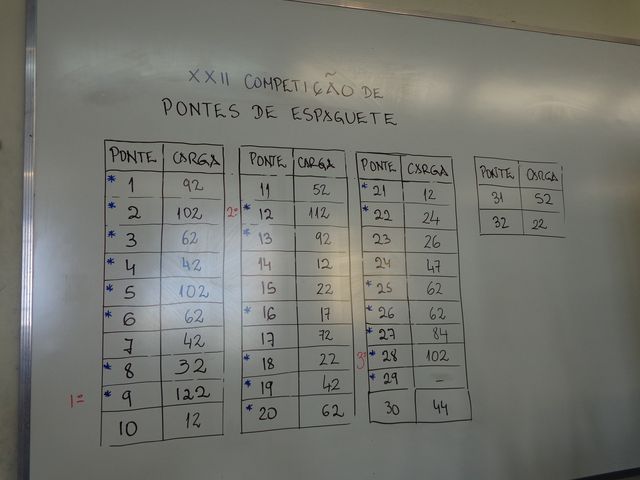 XXII COMPETIÇÃO DE
PONTES DE ESPAGUETE
PONTE CARGA
* 1 92
* 2 102
* 3 62
* 4 42
* 5 102
* 6 62
7 42
* 8 32
1º * 9 122
10 12
PONTE CARGA
11 52
2º * 12 112
* 13 92
14 12
15 22
* 16 17
17 72
* 18 22
* 19 42
* 20 62
PONTE CARGA
* 21 12
* 22 24
23 26
24 47
* 25 62
* 26 62
* 27 84
3º * 28 102
* 29 -
30 44
PONTE CARGA
31 52
32 22